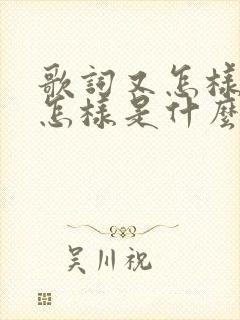 歌詞又怎樣
怎樣是什麼
吴川祝